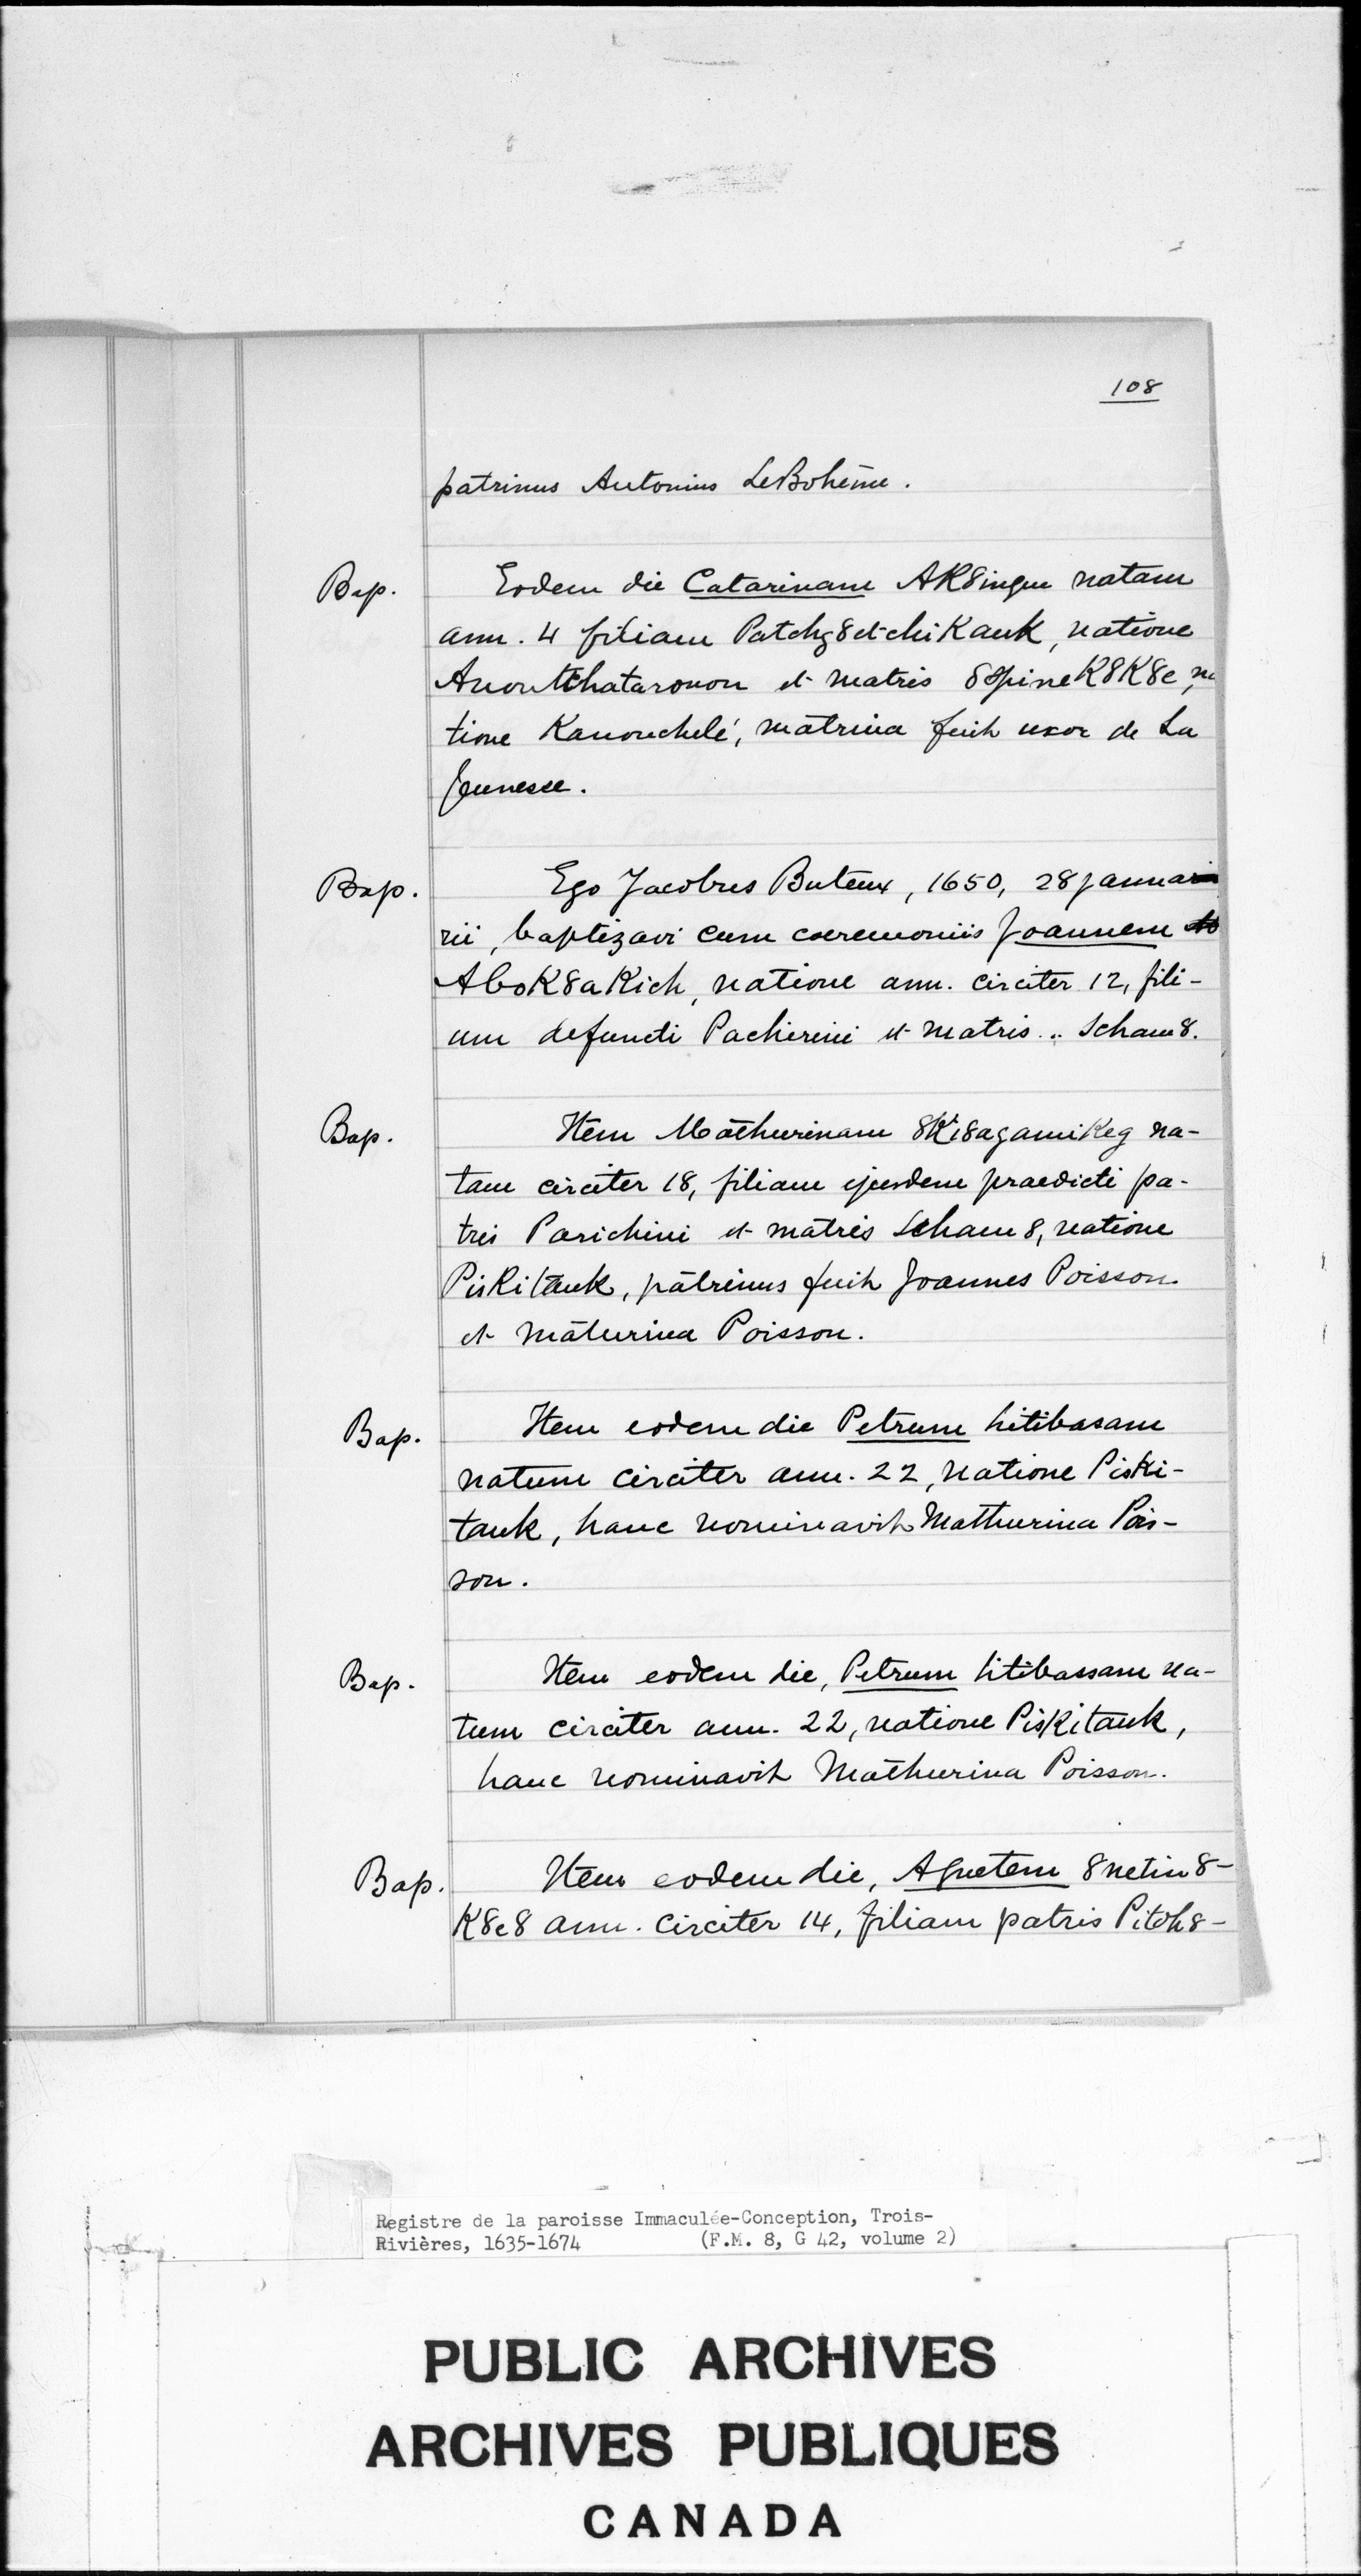 108
patrinus Antonius LeBohême.
Bap. Eodem die Catarinam AK8ingu natam
ann. 4 filiam Patchg8etchiKank, natione
Anontchataronon et matris 8spineK8K8e, na
tione Kanouchelé, matrina fuit uxor de La
Jeunesse.
Bap. Ego Jacobus Buteux, 1650, 28 janua
rii, baptizavi cum coeremoniis Joannem
AboK8aKich, natione ann. circiter 12, fili-
um defuncti Pachirini et matris .. Scham8.
Bap. Item Mathurinam 8Ki8agamiKeg na-
tam circiter 18, filiam ejusdem praedicti pa-
tris Parichini et matris Scham8, natione
PisKitank, patrinus fuit Joannes Poisson
et Maturina Poisson.
Bap. Item eodem die Petrum hitibasam
natum circiter ann. 22, natione PisKi-
tank, hanc nominavit Mathurina Pois-
son.
Bap. Item eodem die, Petrum hitibassam na-
tum circiter ann. 22, natione PisKitank,
hanc nominavit Mathurina Poisson.
Bap. Item eodem die, Agnetem 8netin8-
K8e8 ann. circiter 14, filiam patris Pitch8-
Registre de la paroisse Immaculée-Conception, Trois-
Rivières, 1635-1674 (F.M. 8, G 42, volume 2)
PUBLIC ARCHIVES
ARCHIVES PUBLIQUES
CANADA